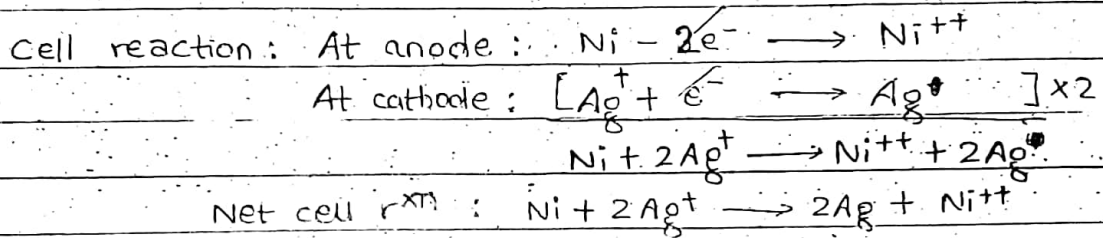 Cell reaction : At anode : Ni - 2e⁻ ⟶ Ni⁺⁺
At cathode : [Ag⁺ + e⁻ ⟶ Ag ] ×2
Ni + 2Ag⁺ ⟶ Ni⁺⁺ + 2Ag
Net cell rˣⁿ : Ni + 2Ag⁺ ⟶ 2Ag + Ni⁺⁺